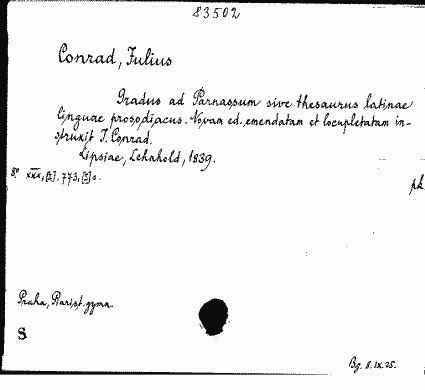 83502
Conrad, Julius
Gradus ad Parnassum sive thesaurus latinae
linguae prosodiacus. Novam ed., emendatam et locupletatam in-
struxit J. Conrad.
Lipsiae, Lehnhold, 1839.
8° XXX, [2], 773, [1] s.
pk
Praha, gymn.
S
Bg. 8.IX.25.